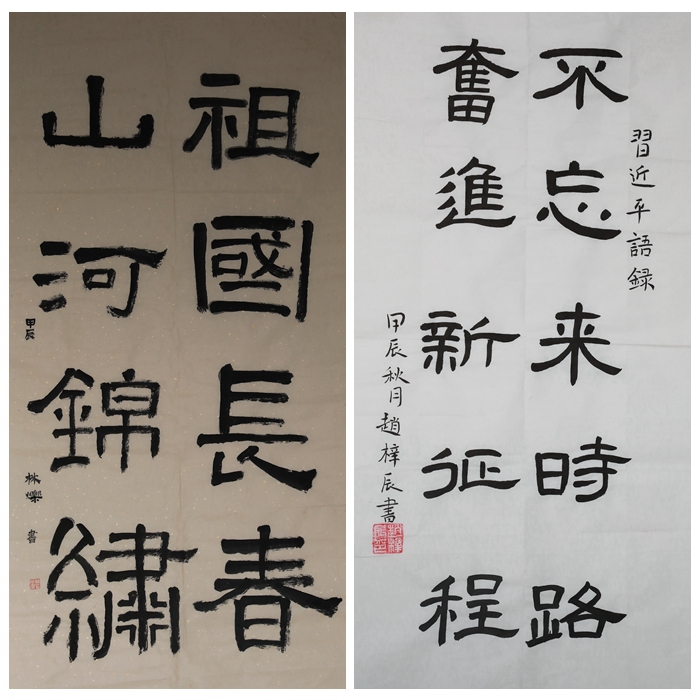 祖國長春
山河錦繡
甲辰
林爍書
習近平語録
不忘来時路
奮進新征程
甲辰秋月趙梓辰書